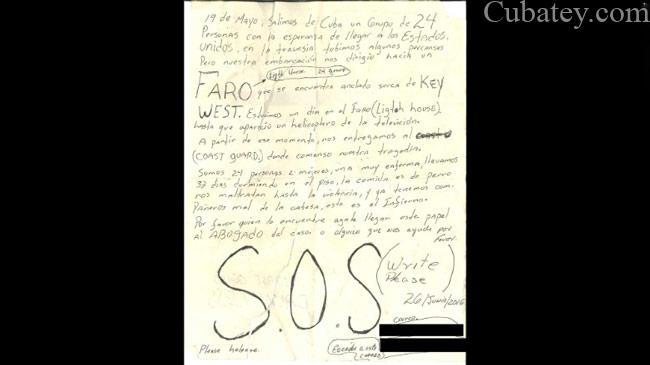 Cubatey.com
19 de Mayo, Salimos de Cuba un Grupo de 24
Personas con la esperanza de llegar a los Estados
Unidos, en la travesia tubimos algunos percanses
Pero nuestra embarcación nos dirigio hacia un
Ligth House
FARO que se encuentra anclado serca de KEY
WEST. Estuimos un dia en el Faro (Ligteh house)
hasta que aparecio un helicoptero de la televicion.
A partir de ese momento, nos entregamos al
(COAST GUARD,) donde comenso nuestra tragedia.
Somos 24 personas 2 mujeres, una muy enferma, llevamos
37 dias durmiendo en el piso, la comida es de perro
nos maltratan hasta la violencia, y ya tenemos com
Pañeros mal de la cabesa, esto es el Infierno.
Por favor quien lo encuentre agale llegar este papel
al ABOGADO del caso. o alguien que nos ayude por
Favor.
S.O.S
(Write
Please)
26/Junio/2016
correo
Please
Escriba a este
(correo)